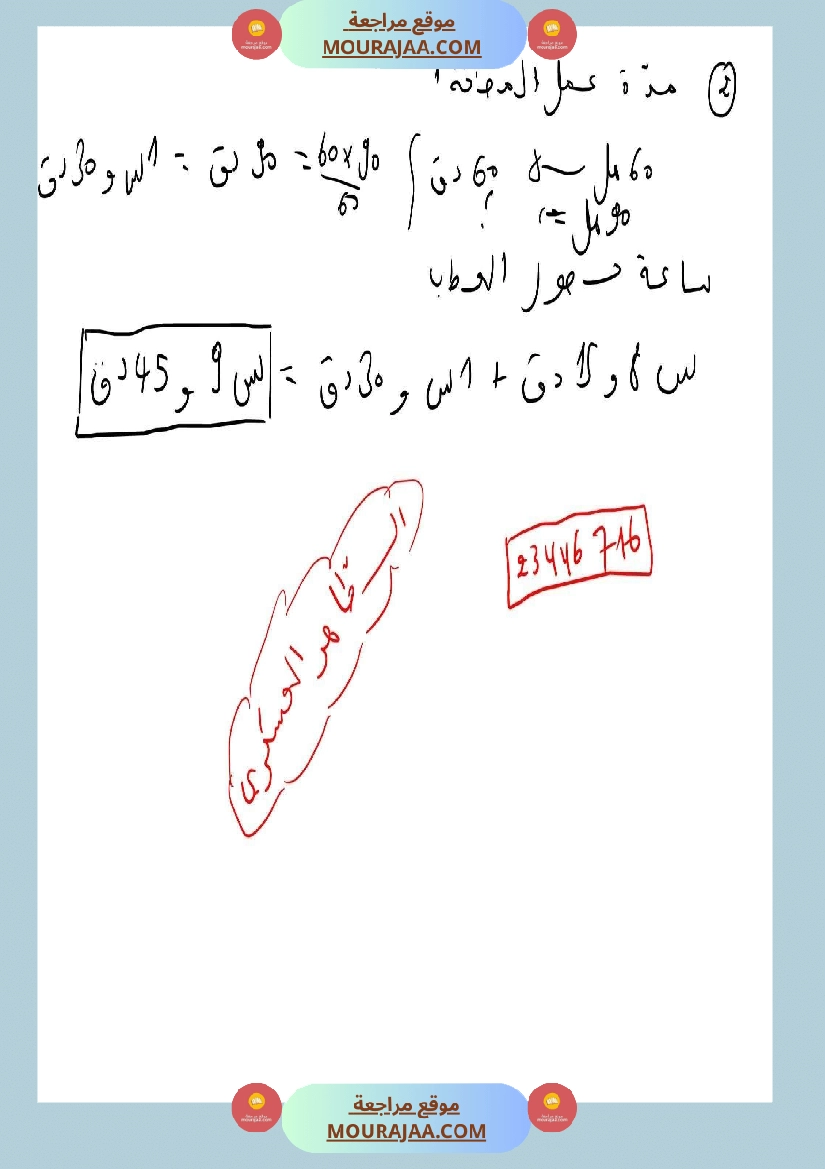 موقع مراجعة
MOURAJAA.COM
② مدة عمل المضخة:
60 هل → 60 دق
90 هل → ؟
60×90 / 60 = 90 دق = 1س و 30 دق
ساعة حصول العطب
س 8 و 15 دق + 1س و 30 دق = س 9 و 45 دق
23446 716
العسكري
موقع مراجعة
MOURAJAA.COM